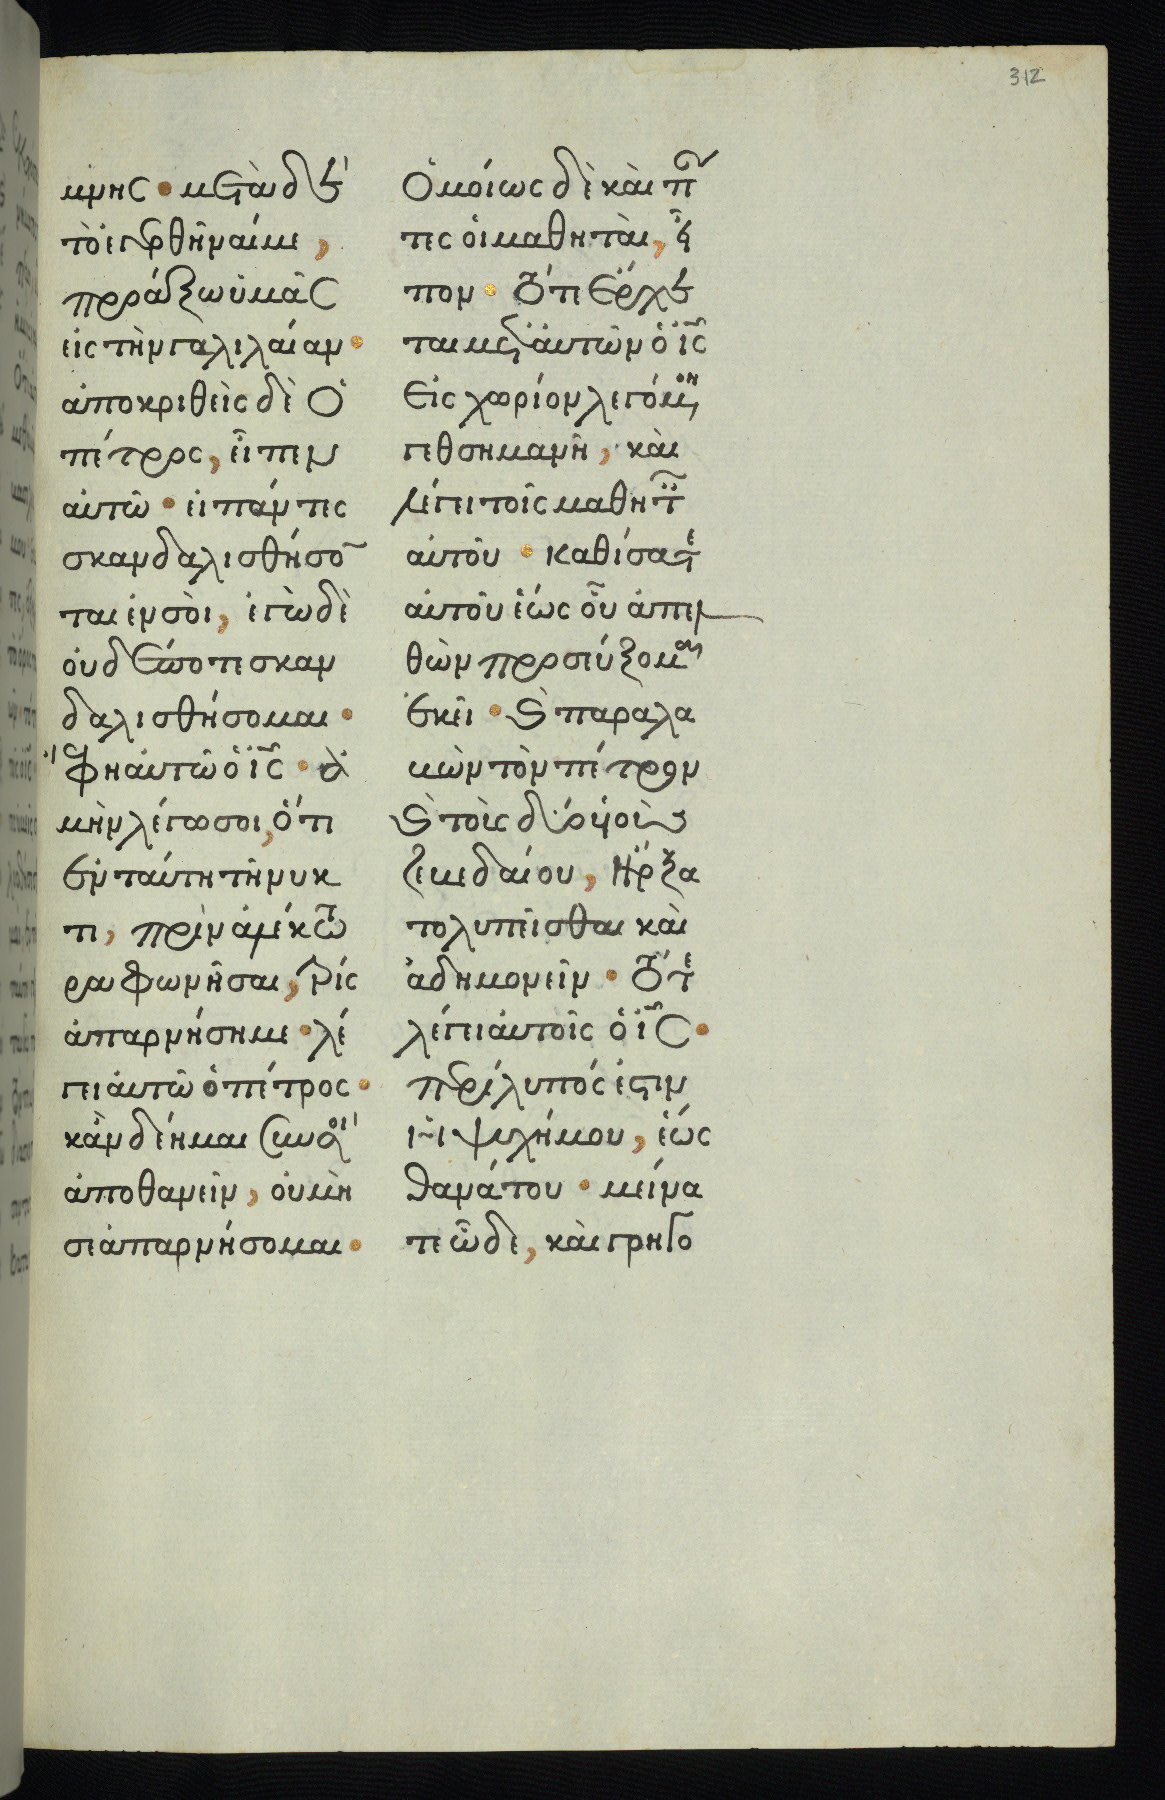 312
μνης · μετὰ δὲ
τὸ ἐγερθῆναί με,
προάξω ὑμᾶς
εἰς τὴν γαλιλαίαν ·
ἀποκριθεὶς δὲ ὁ
πέτρος, εἶπεν
αὐτῶ · εἰ πάντες
σκανδαλισθήσο̅
ται ἐν σοὶ, ἐγὼ δὲ
οὐδέποτε σκαν
δαλισθήσομαι ·
Ἔφη αὐτῶ ὁ ἰς̅ · ἀ
μὴν λέγω σοι, ὅτι
ἐν ταύτη τῆ νυκ
τι, πρὶν ἀλέκτω
ρα φωνῆσαι, τρίς
ἀπαρνήση με · λέ
γει αὐτῶ ὁ πέτρος ·
κἂν δέη με σὺν σοὶ
ἀποθανεῖν, οὐ μή
σε ἀπαρνήσομαι ·
Ὁμοίως δὲ καὶ πάν
τες οἱ μαθηταὶ, εἶ
πον · Τότε ἔρχε
ται μετ' αὐτῶν ὁ ἰς̅
Εἰς χωρίον λεγόμενον
γεθσημανῆ, καὶ
λέγει τοῖς μαθηταῖς
αὐτοῦ · καθίσατε
αὐτοῦ ἕως οὗ ἀπελ
θὼν προσεύξομαι
ἐκεῖ · καὶ παραλα
βὼν τὸν πέτρον
καὶ τοὺς δύο υἱοὺς
ζεβεδαίου, ἤρξα
το λυπεῖσθαι καὶ
ἀδημονεῖν · Τότε
λέγει αὐτοῖς ὁ ἰς̅ ·
περίλυπός ἐστιν
ἡ ψυχή μου, ἕως
θανάτου · μείνα
τε ὧδε, καὶ γρηγο